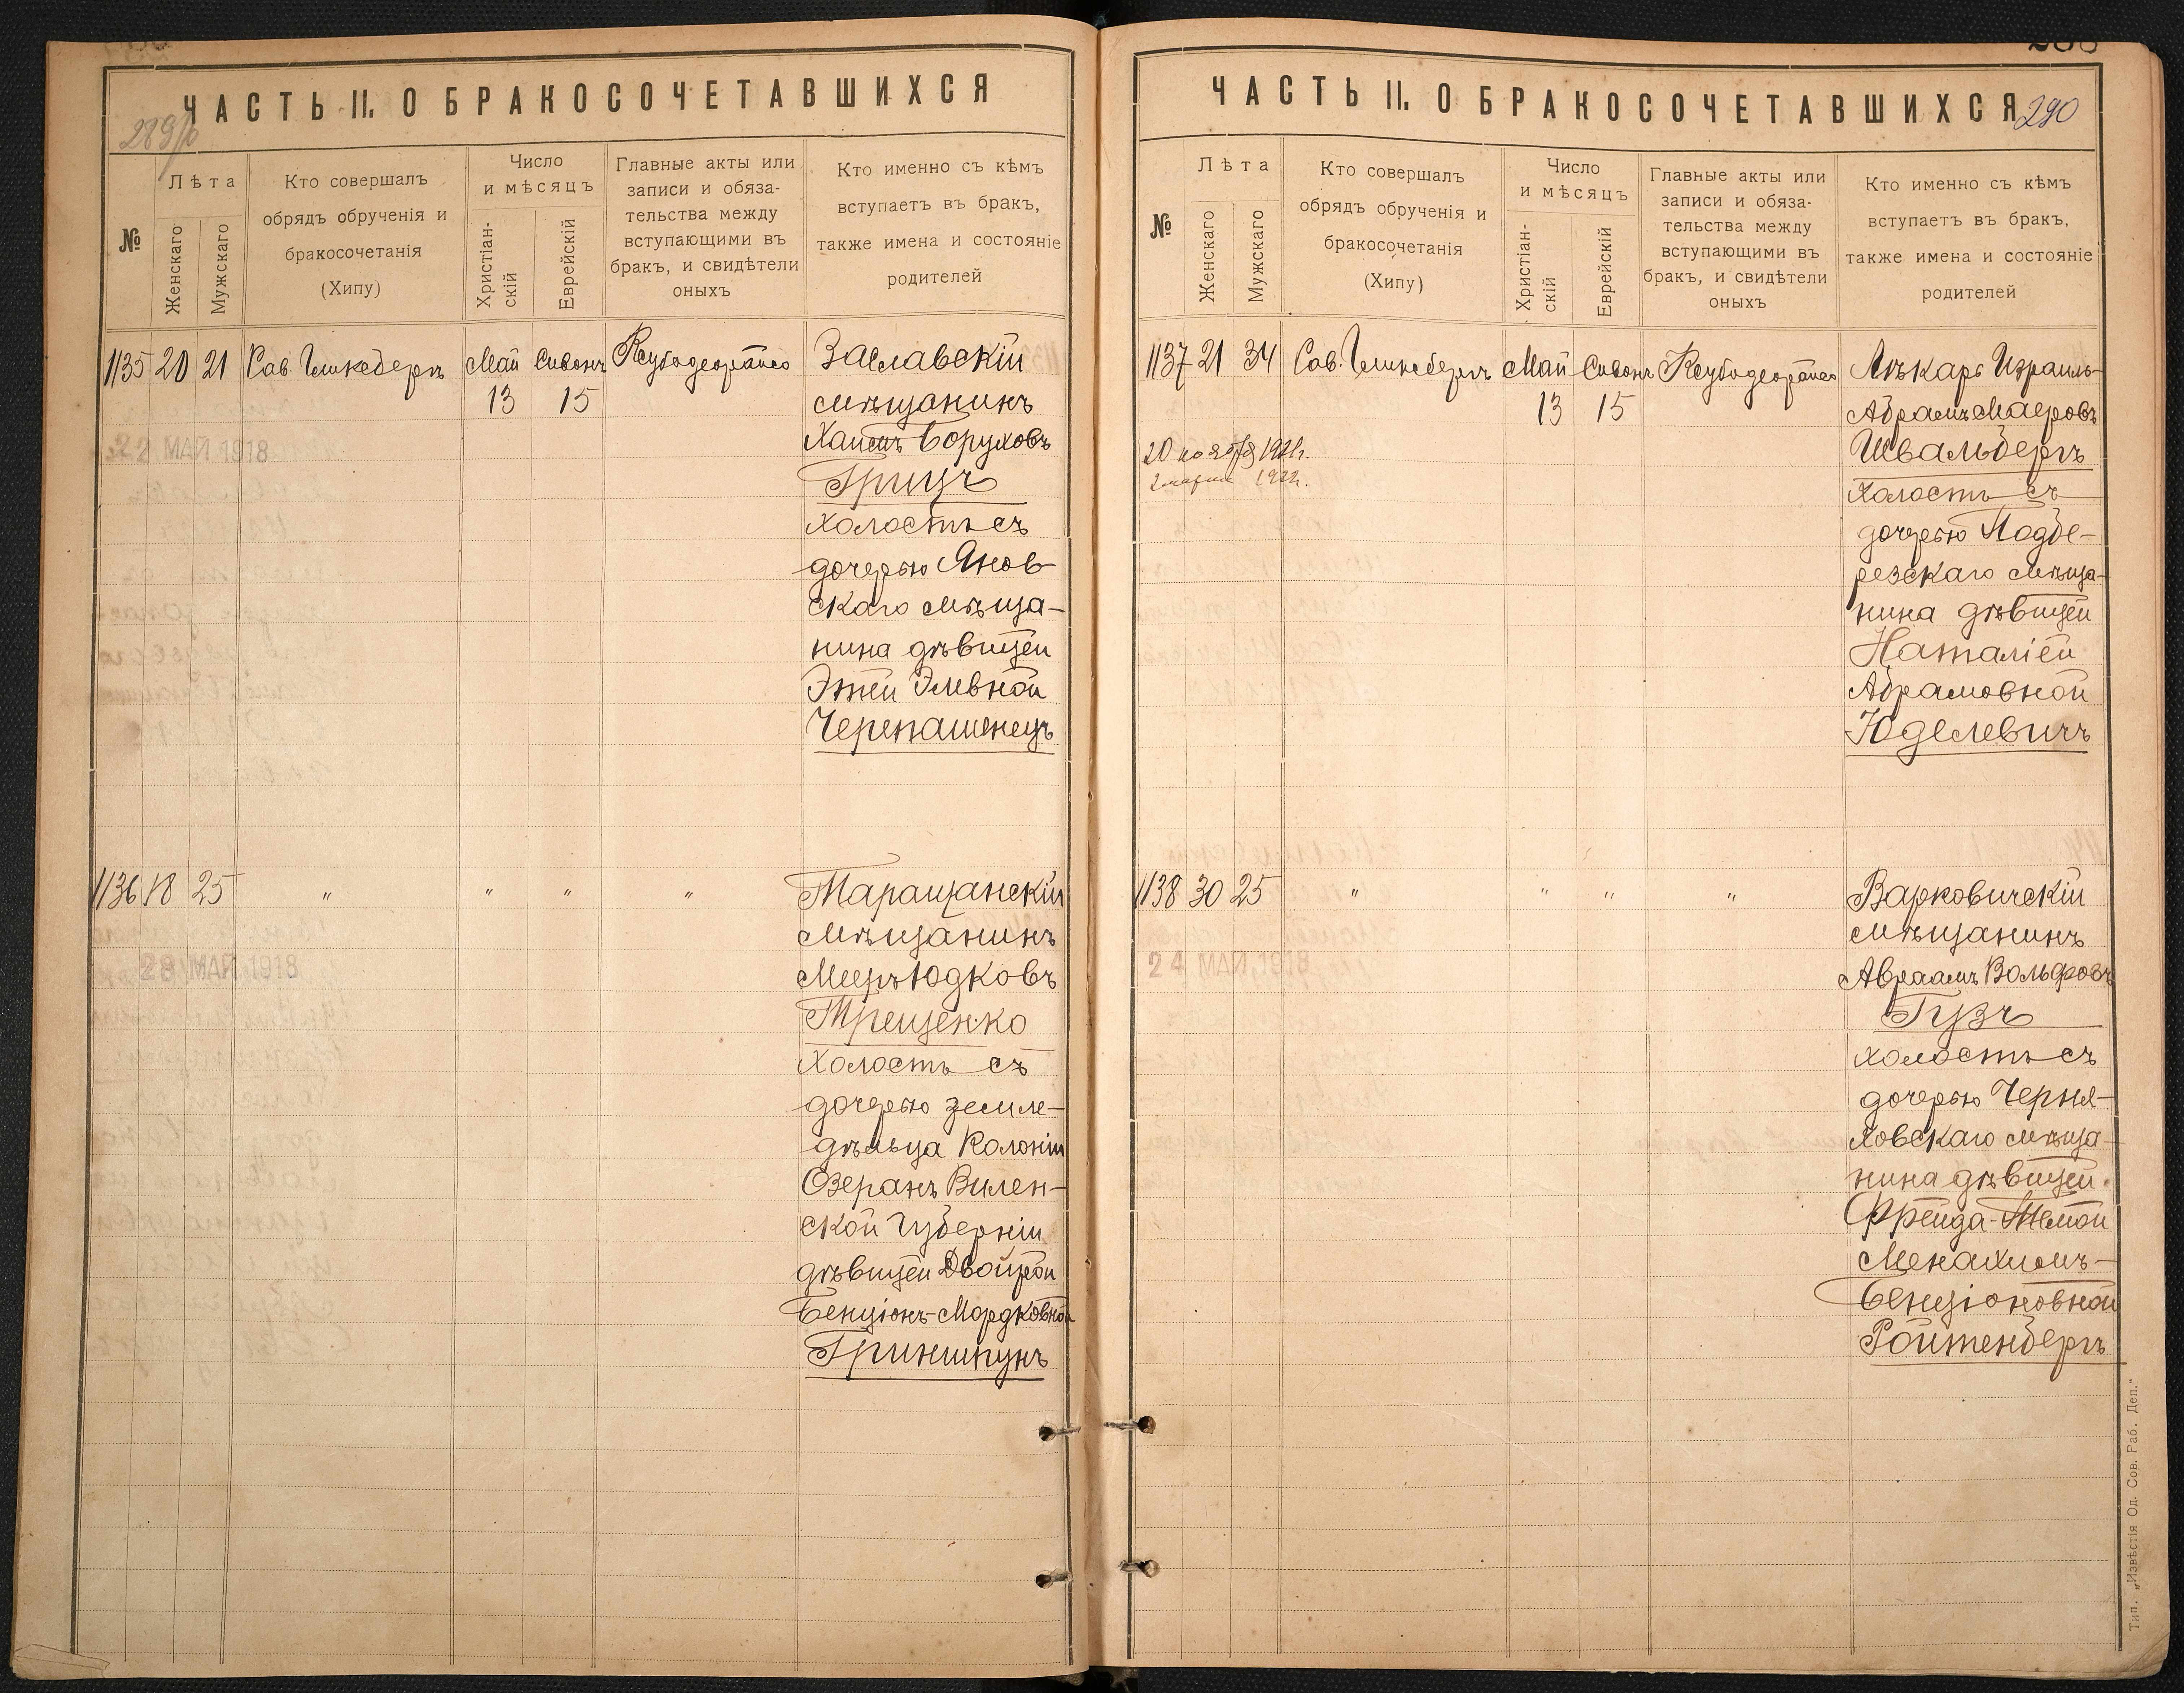 ЧАСТЬ II. О БРАКОСОЧЕТАВШИХСЯ
№
Лѣта
Женскаго
Мужскаго
Кто совершалъ
обрядъ обрученія и
бракосочетанія
(Хипу)
Число
и мѣсяцъ
Христіан-
скій
Еврейскій
Главные акты или
записи и обяза-
тельства между
вступающими въ
бракъ, и свидѣтели
оныхъ
Кто именно съ кѣмъ
вступаетъ въ бракъ,
также имена и состояніе
родителей
1135 20 21 Рав. Гликсбергъ Май Сивонъ
13 15
22 МАЙ 1918
Заславскій
мѣщанинъ
Хаимъ Боруховъ
Грицъ
холостъ съ
дочерью Янов-
скаго мѣща-
нина дѣвицей
Этей Элевной
Черепашенецъ
1136 18 25 " " " "
28 МАЙ 1918
Таращанскій
мѣщанинъ
Мееръ Юдковъ
Трещенко
холостъ съ
дочерью земле-
дѣльца Колоніи
Озеранъ Вилен-
ской Губерніи
дѣвицей Двойрой
Бенціонъ-Мордковной
Гриншпунъ
ЧАСТЬ II. О БРАКОСОЧЕТАВШИХСЯ
290
№
Лѣта
Женскаго
Мужскаго
Кто совершалъ
обрядъ обрученія и
бракосочетанія
(Хипу)
Число
и мѣсяцъ
Христіан-
скій
Еврейскій
Главные акты или
записи и обяза-
тельства между
вступающими въ
бракъ, и свидѣтели
оныхъ
Кто именно съ кѣмъ
вступаетъ въ бракъ,
также имена и состояніе
родителей
1137 21 34 Рав. Гликсбергъ Май Сивонъ
13 15
20 ноября 1921г.
2 марта 1922г.
Лѣкарь Израиль-
Абрамъ Маеровъ
Швальбергъ
холостъ съ
дочерью Подбе-
резскаго мѣща-
нина дѣвицей
Наталіей
Абрамовной
Юделевичъ
1138 30 25 " " " "
24 МАЙ 1918
Варковичскій
мѣщанинъ
Авраамъ Вольфовъ
Гузъ
холостъ съ
дочерью Черня-
ховскаго мѣща-
нина дѣвицей
Фрейда-Темой
Менахимъ-
Бенціоновной
Ройтенбергъ
Тип. „Извѣстія Од. Сов. Раб. Деп."